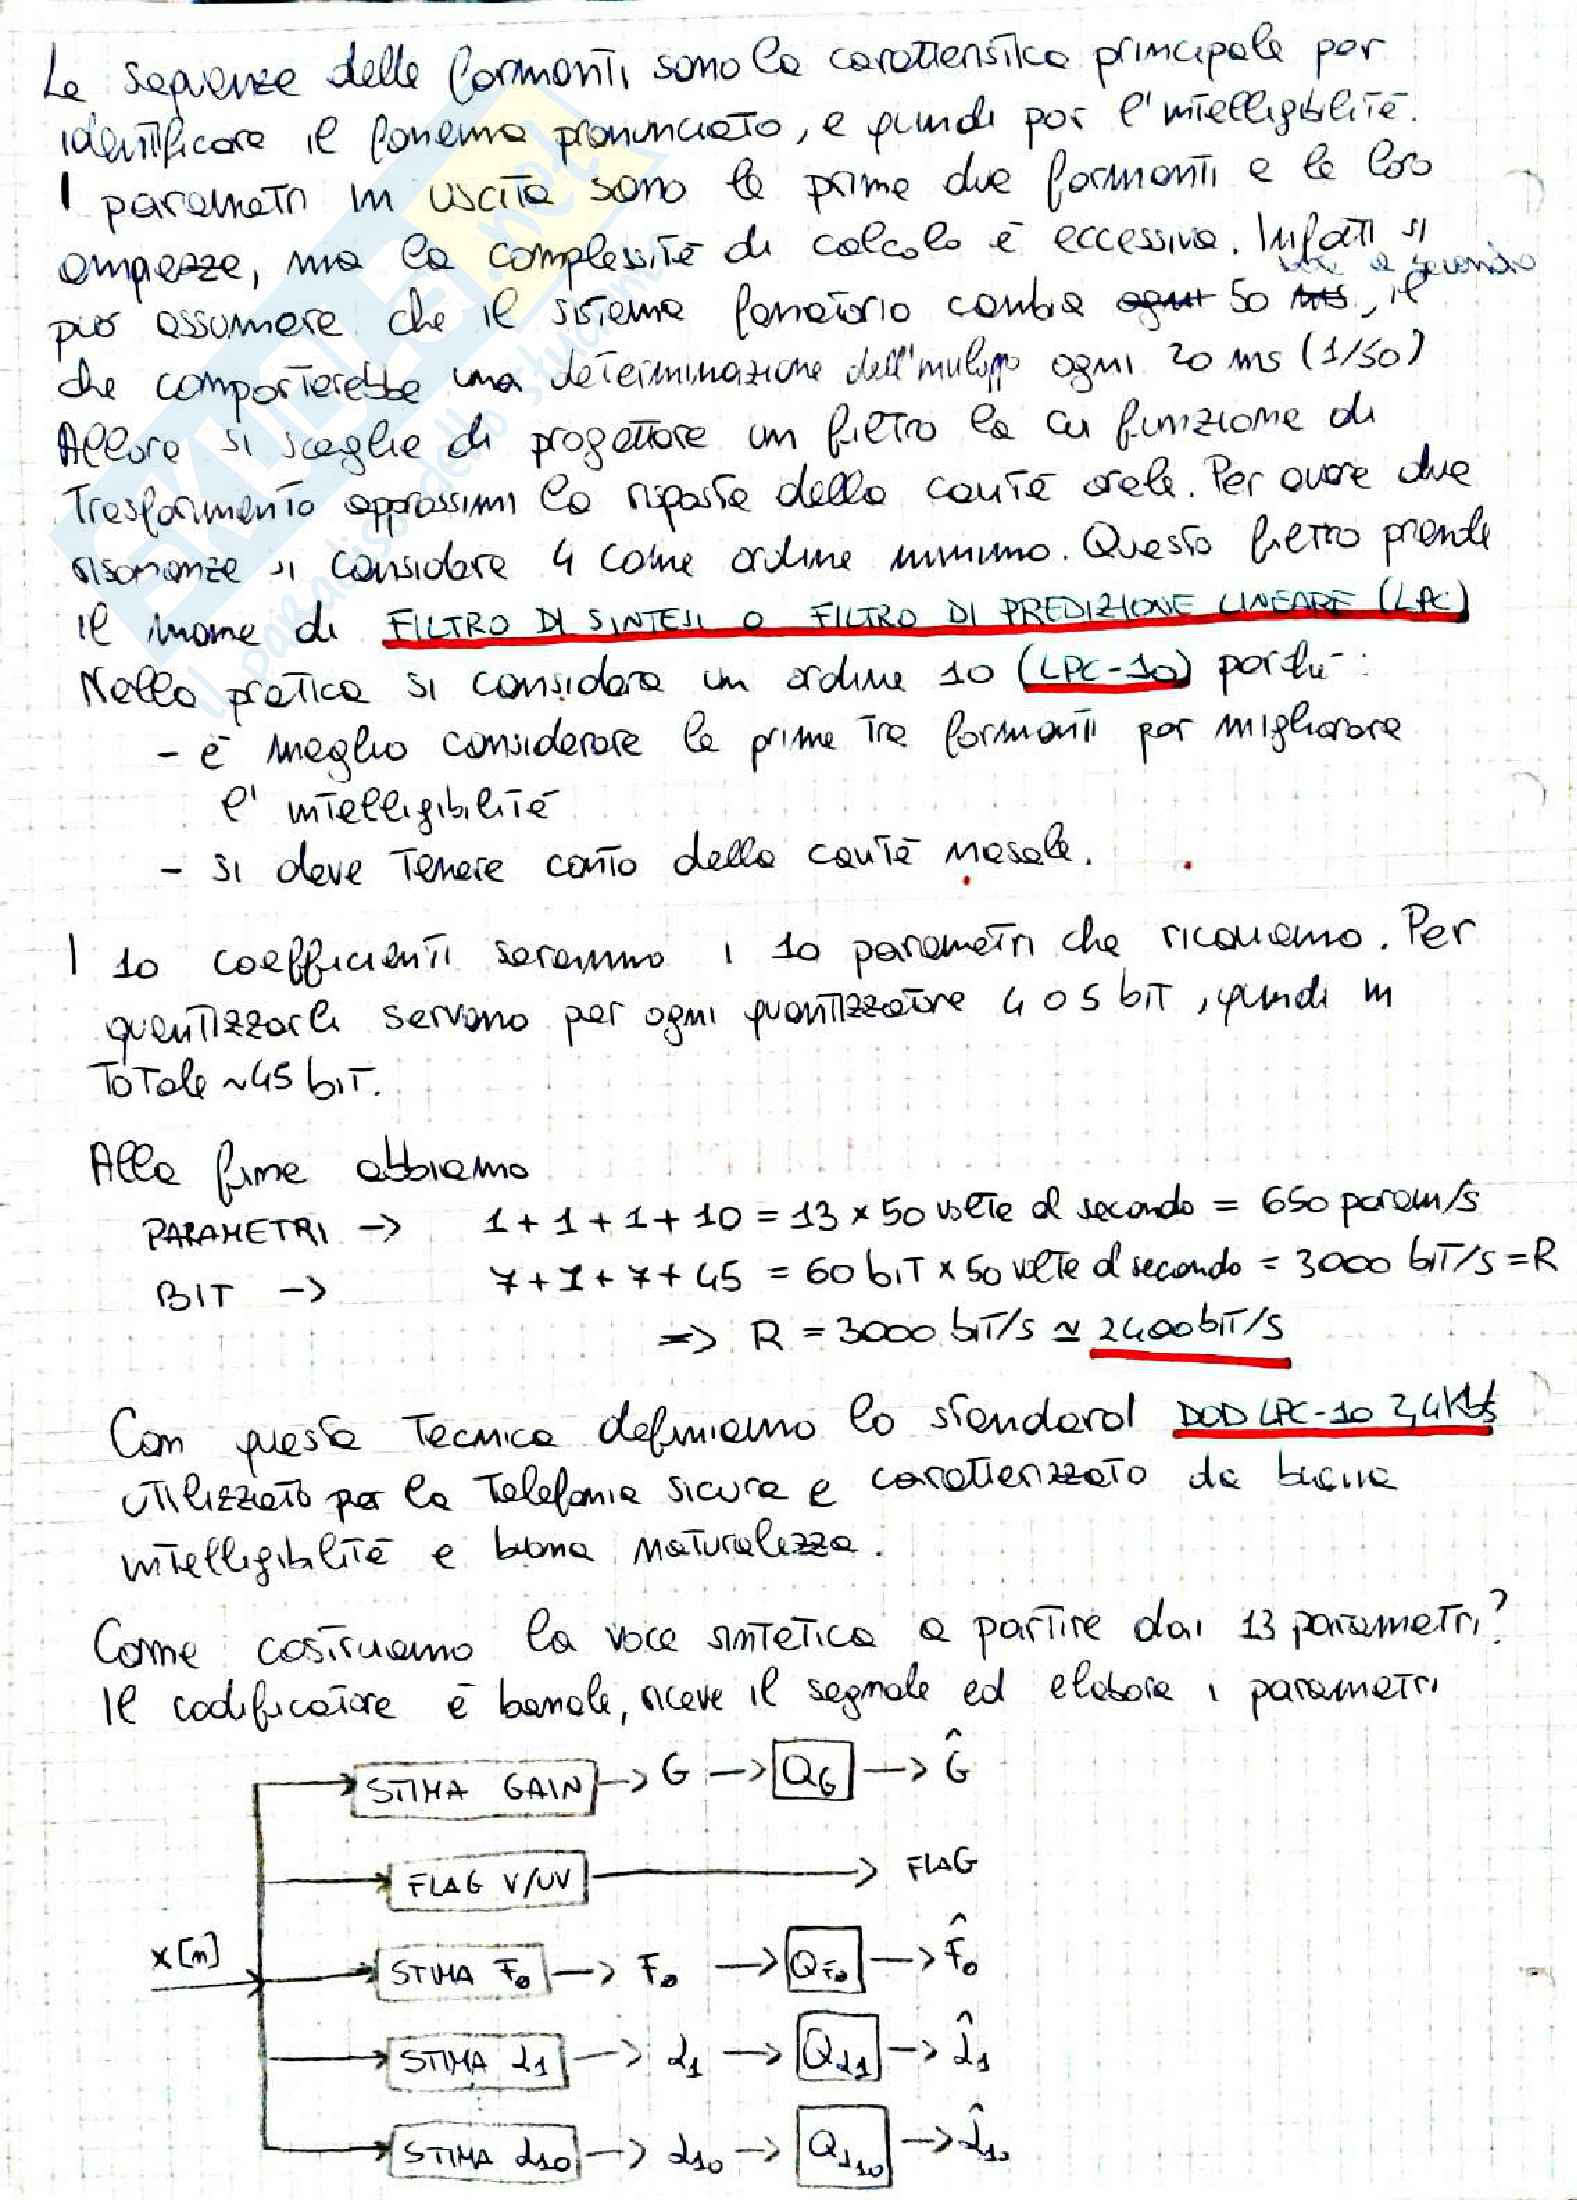 Le sequenze delle formanti sono la caratteristica principale per
identificare il fonema pronunciato, e quindi per l'intelligibilità.
I parametri in uscita sono le prime due formanti e le loro
ampiezze, ma la complessità di calcolo è eccessiva. Infatti si
volte a secondo
può assumere che il sistema fonatorio cambia ogni 50 ms, il
che comporterebbe una determinazione dell'inviluppo ogni 20 ms (1/50)
Allora si sceglie di progettare un filtro la cui funzione di
trasferimento approssimi la risposta della cavità orale. Per avere due
risonanze si considera 4 come ordine minimo. Questo filtro prende
il nome di FILTRO DI SINTESI O FILTRO DI PREDIZIONE LINEARE (LPC)
Nella pratica si considera un ordine 10 (LPC-10) perché:
- è meglio considerare le prime tre formanti per migliorare
l'intelligibilità
- si deve tenere conto della cavità nasale.
I 10 coefficienti saranno i 10 parametri che ricaviamo. Per
quantizzarli servono per ogni quantizzatore 4 o 5 bit, quindi in
totale ~45 bit.
Alla fine abbiamo
PARAMETRI -> 1+1+1+10 = 13 x 50 volte al secondo = 650 param/s
BIT -> 7+1+7+45 = 60 bit x 50 volte al secondo = 3000 bit/s = R
=> R = 3000 bit/s ≃ 2400 bit/s
Con questa tecnica definiamo lo standard DOD LPC-10 2,4 kb/s
utilizzato per la telefonia sicura e caratterizzato da buona
intelligibilità e buona naturalezza.
Come costruiamo la voce sintetica a partire dai 13 parametri?
Il codificatore è banale, riceve il segnale ed elabora i parametri
STIMA GAIN -> G -> Q_G -> Ĝ
FLAG V/UV -> FLAG
x[n]
STIMA F₀ -> F₀ -> Q_F₀ -> F̂₀
STIMA α₁ -> α₁ -> Q_α₁ -> α̂₁
STIMA α₁₀ -> α₁₀ -> Q_α₁₀ -> α̂₁₀
SKUOLA.net
il paradiso dello studente